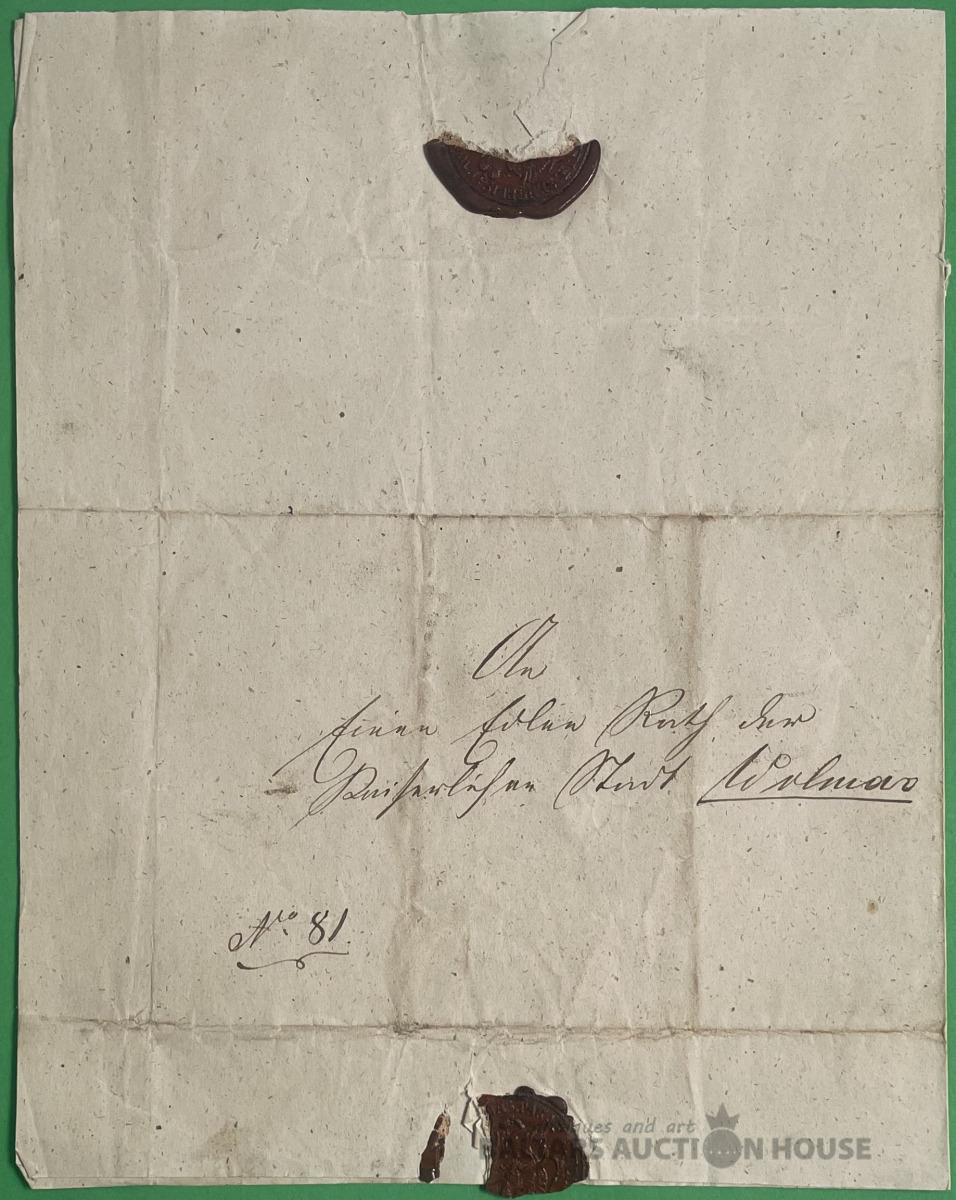 An
Einen Edlen Rath der
Kaiserlichen Stadt Wolmar
No. 81.
antiques and art
BALTARS AUCTION HOUSE